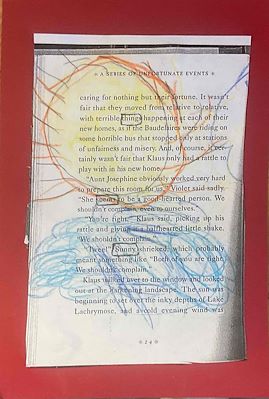 A SERIES OF UNFORTUNATE EVENTS
caring for nothing but their fortune. It wasn't
fair that they moved from relative to relative,
with terrible things happening at each of their
new homes, as if the Baudelaires were riding on
some horrible bus that stopped only at stations
of unfairness and misery. And, of course, it cer-
tainly wasn't fair that Klaus only had a rattle to
play with in his new home.
"Aunt Josephine obviously worked very hard
to prepare this room for us," Violet said sadly.
"She seems to be a good-hearted person. We
shouldn't complain, even to ourselves."
"You're right," Klaus said, picking up his
rattle and giving it a halfhearted little shake.
"We shouldn't complain."
"Twee!" Sunny shrieked, which probably
meant something like "Both of you are right.
We shouldn't complain."
Klaus walked over to the window and looked
out at the darkening landscape. The sun was
beginning to set over the inky depths of Lake
Lachrymose, and a cold evening wind was
24